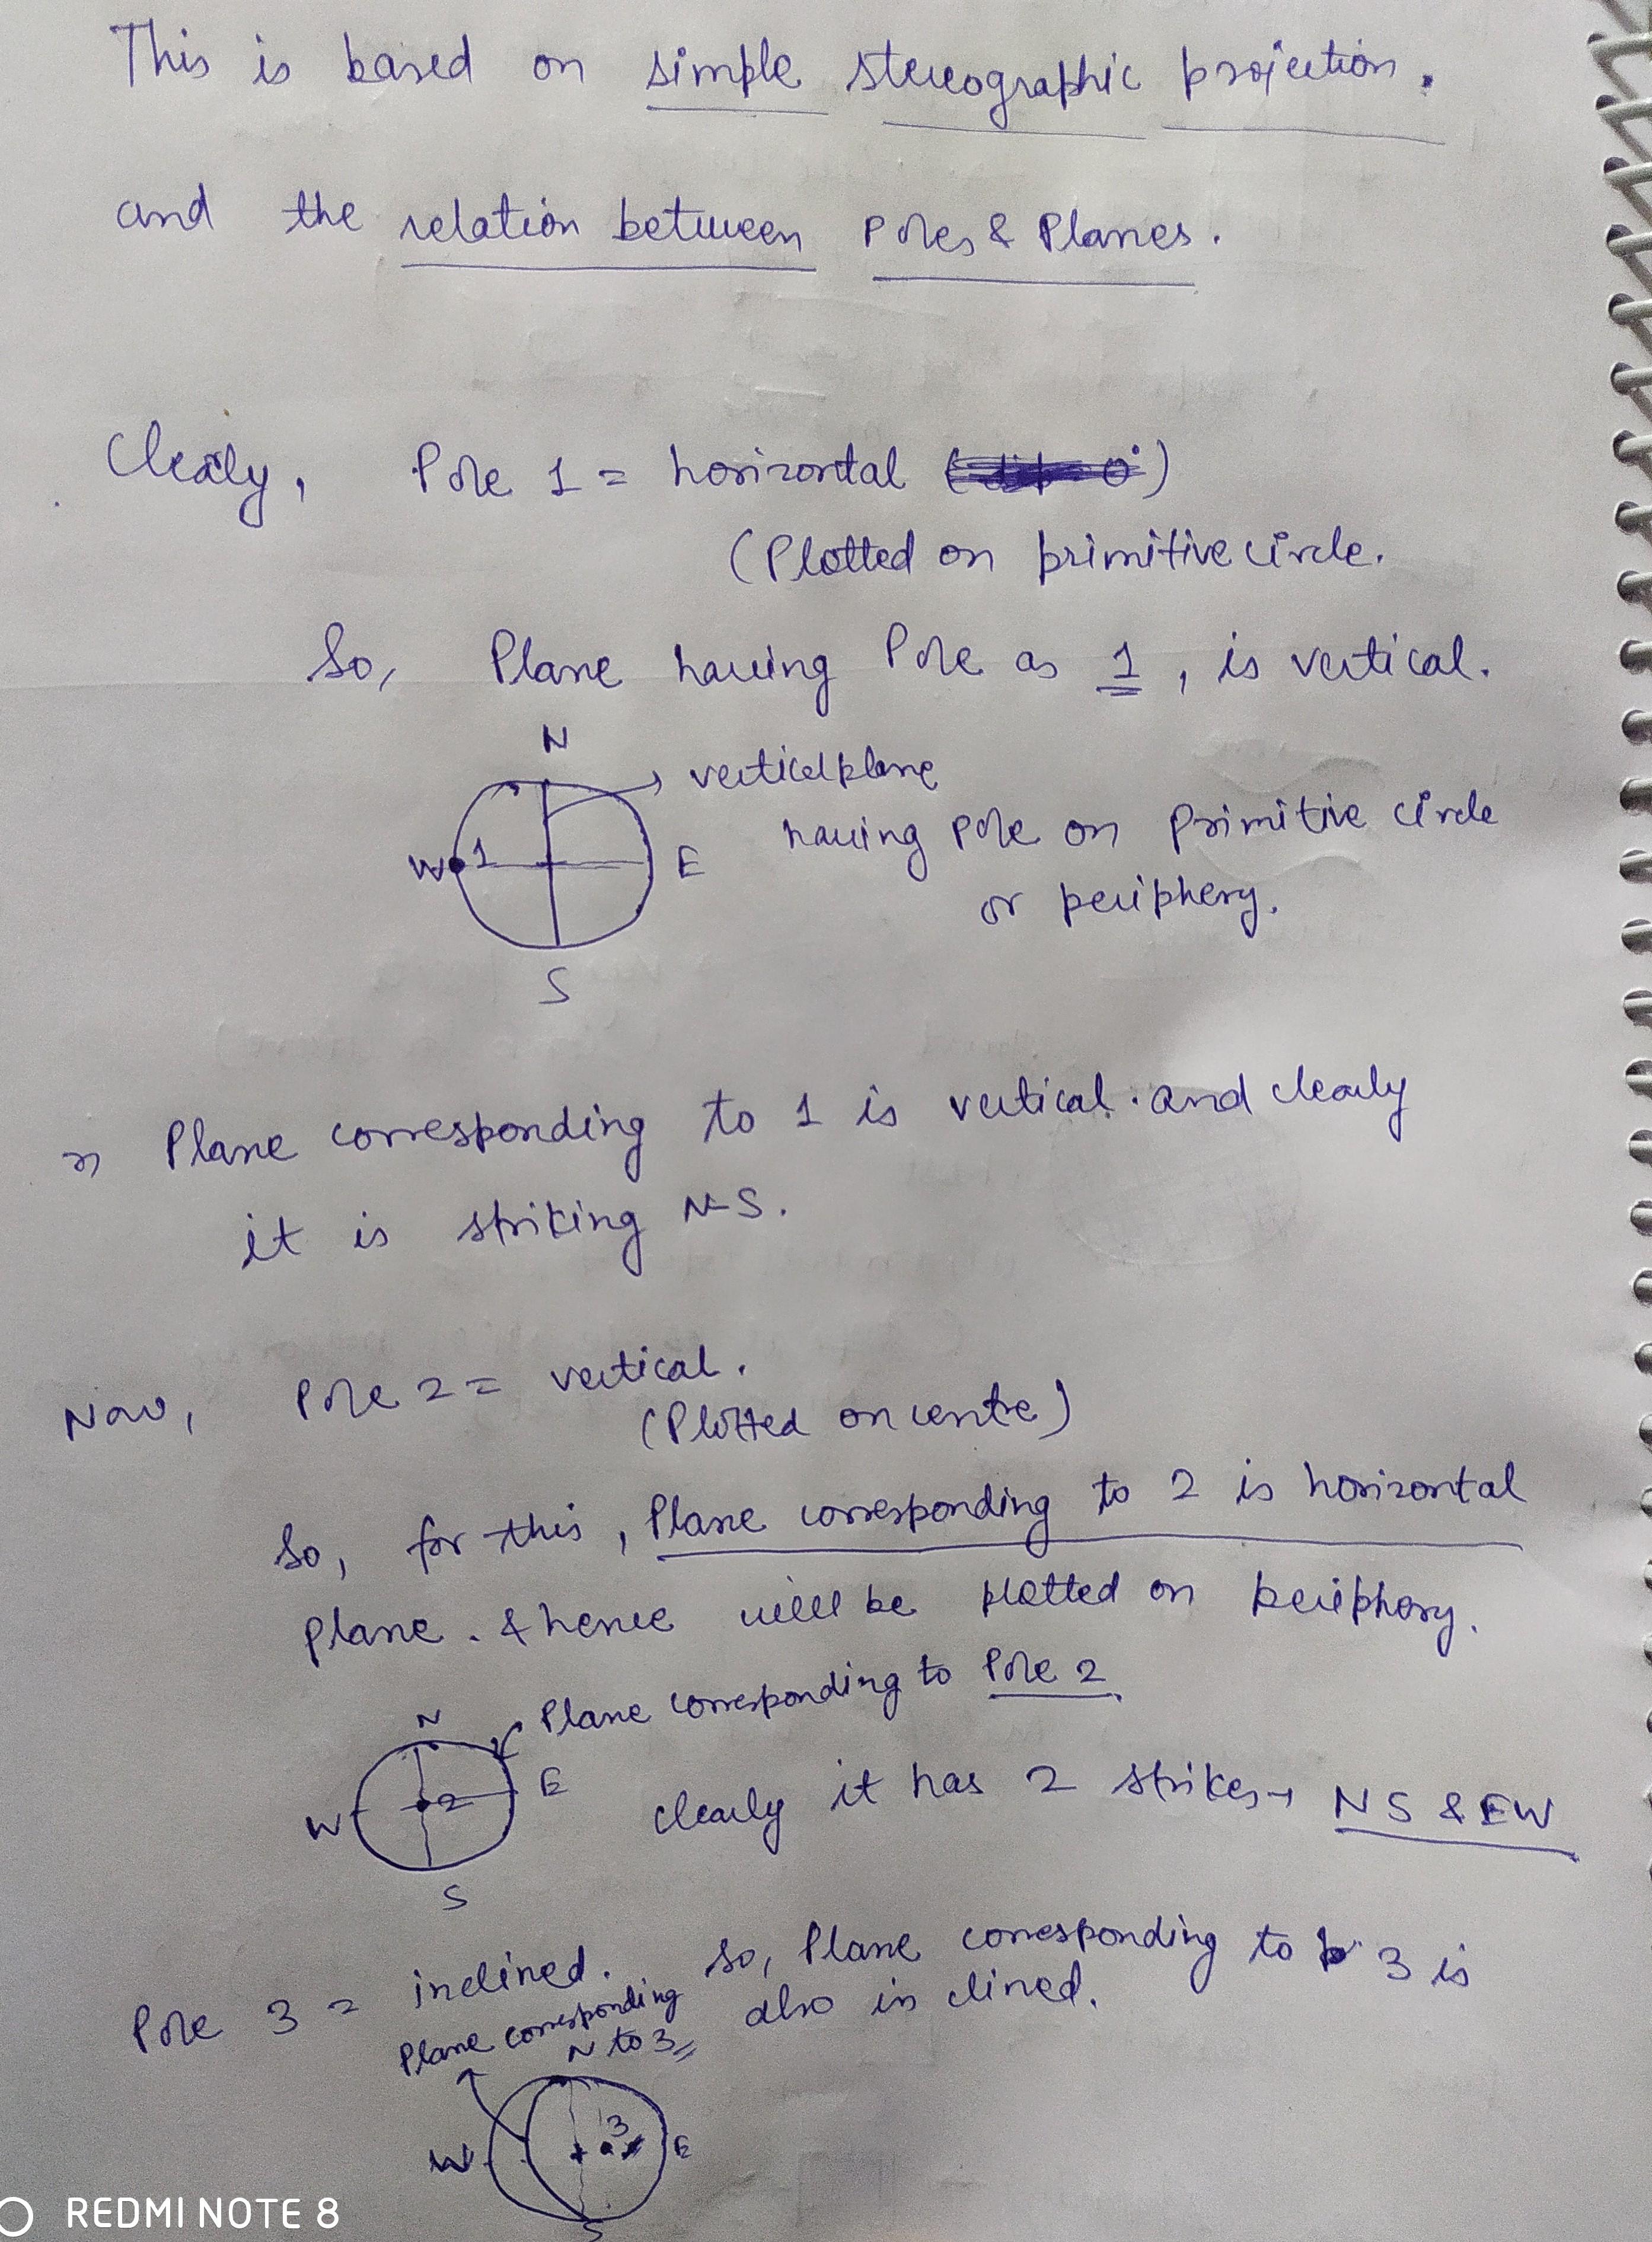 This is based on simple stereographic projection.
and the relation between Poles & Planes.
Clearly, Pole 1 = horizontal
(Plotted on primitive circle.
So, Plane having Pole as 1, is vertical.
N
vertical plane
having pole on Primitive circle
W 1 E
or periphery.
S
Plane corresponding to 1 is vertical. and clearly
it is striking N-S.
Now, Pole 2 = vertical.
(Plotted on centre)
So, for this, Plane corresponding to 2 is horizontal
plane. & hence will be plotted on periphery.
Plane corresponding to Pole 2
N
W 2 E
clearly it has 2 strikes → NS & EW
S
Pole 3 = inclined. So, Plane corresponding to 3 is
also inclined.
Plane corresponding
to 3
N
W 3 E
S
REDMI NOTE 8